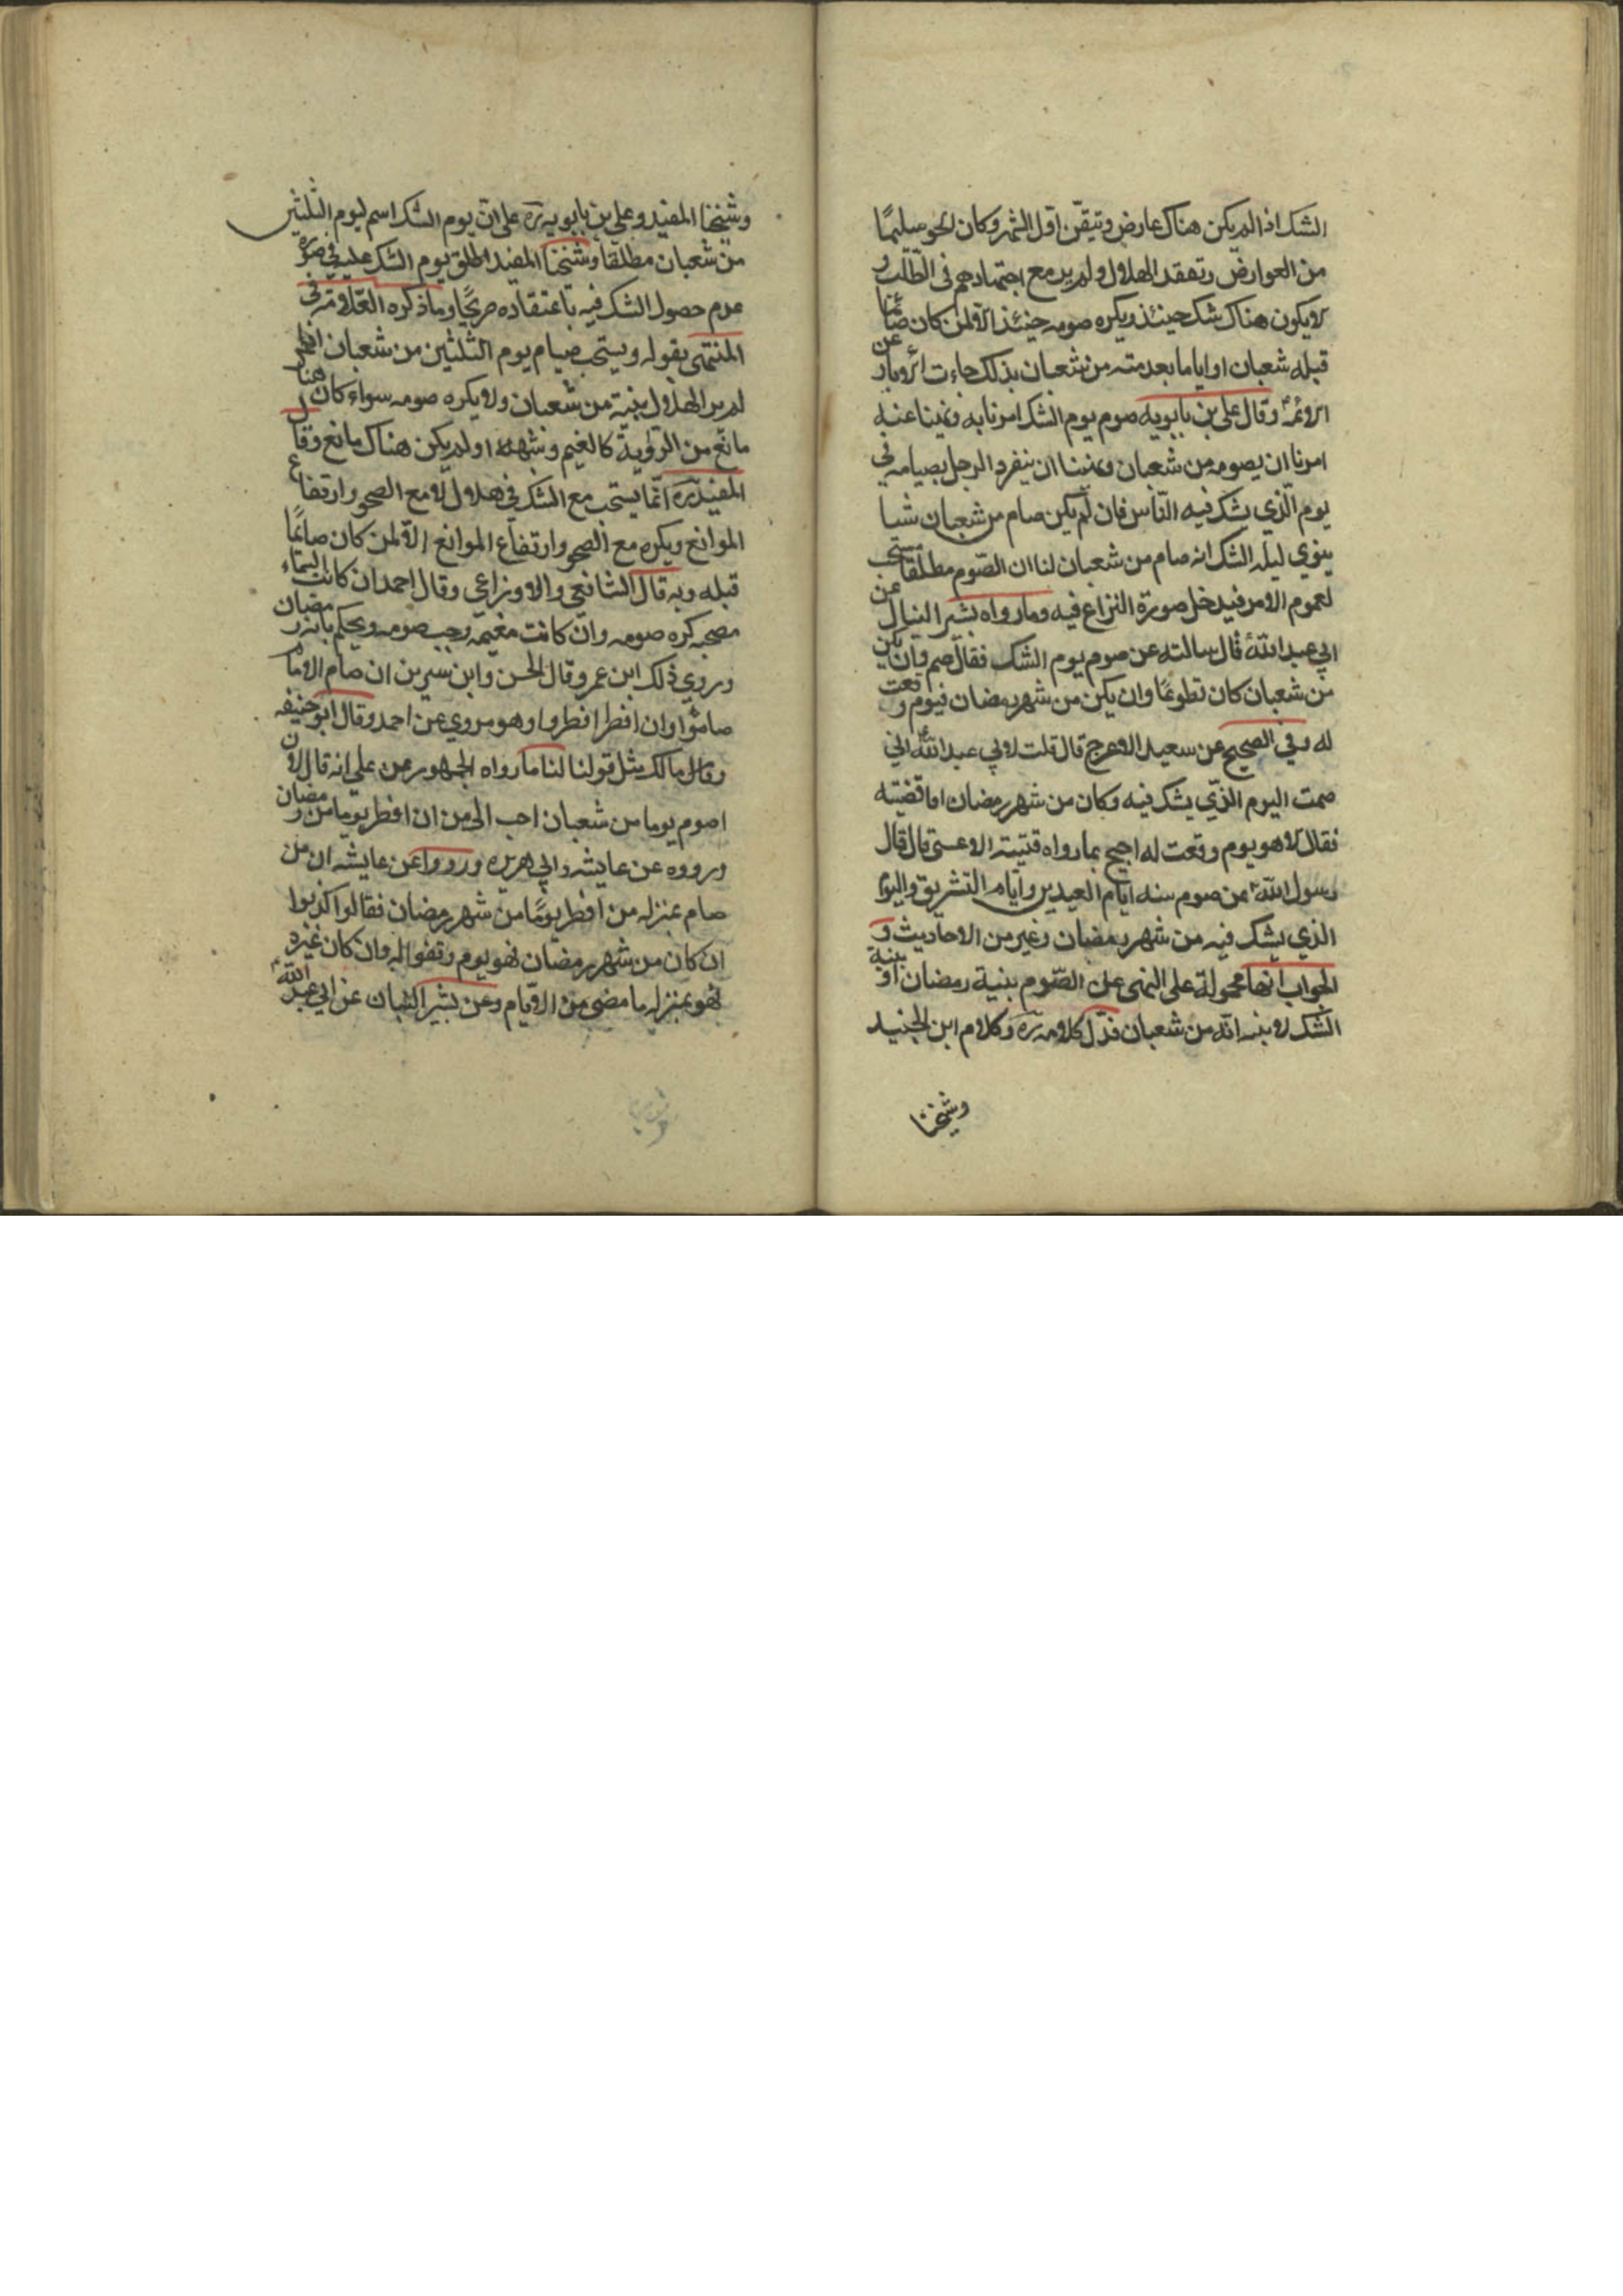 الشك اذا لم يكن هناك عارض وتيقن اول الشهر وكان الجو سليمًا
من العوارض وتفقد الهلال ولم ير مع اجتهادهم في الطلب و
لا يكون هناك شك حينئذ ويكره صومه حينئذ الا لمن كان صائما
قبله شعبان او اياما تقدمته من شعبان بذلك جاءت الاثار عن
الائمة وقال علي بن بابويه صوم يوم الشك امرنا به ونهينا عنه
امرنا ان يصومه من شعبان ونهينا ان ينفرد الرجل بصيامه في
يوم الّذي يشك فيه النّاس فان لم يكن صام من شعبان شيا
ينوي ليله الشك انه صام من شعبان لنا ان الصّوم مطلقا مستحب
لعموم الامر فيدخل صورة النزاع فيه وما رواه بشير النبال عن
ابي عبد الله ع قال سالته عن صوم يوم الشك فقال صم وان يكن
من شعبان كان تطوعًا وان يكن من شهر رمضان فيوم وفقت
له وفي الصحيح عن سعيد الاعرج قال قلت لابي عبد الله ع اني
صمت اليوم الذّي يشك فيه وكان من شهر رمضان افاقضيه
فقال لا هو يوم وفقت له احتج بما رواه قتيبة الاعشى قال قال
رسول الله عن صوم سته ايام العيدين وايام التشريق واليوم
الذي يشك فيه من شهر رمضان وغير من الاحاديث و
الجواب انها محمولة على النهى عن الصّوم بنية رمضان او بنية
الشك لا بنيه انّه من شعبان فدّل كلامه ره وكلام ابن الجنيد
وشيخنا
وشيخنا المفيد وعلي بن بابويه ره على انّ يوم الشك اسم ليوم الثلثين
من شعبان مطلقا وشيخنا المفيد اطلق يوم الشك عليه في صورة
عدم حصول الشك فيه باعتقاده صريحًا وما ذكره العّلامة في
المنتهى بقوله ويستحب صيام يوم الثلثين من شعبان اذا
لم ير الهلال بنية من شعبان ولا يكره صومه سواء كان هناك
مانع من الرؤية كالغيم وشبهه او لم يكن هناك مانع وقال
المفيد ره انّما يستحب مع الشك في هلال لا مع الصحو وارتفاع
الموانع ويكره مع الصحو وارتفاع الموانع الا لمن كان صائمًا
قبله وبه قال الشافعي والاوزاعي وقال احمد ان كانت السّماء
مصحيه كره صومه وان كانت مغيمه وجب صومه ويحكم بانه من رمضان
وروي ذلك ابن عمر وقال الحسن وابن سيرين ان صام الامام
صاموا وان افطر افطروا وهو مروي عن احمد وقال ابو حنيفه
وقال مالك مثل قولنا لنا ما رواه الجمهور عن علي انه قال لان
اصوم يوما من شعبان احب الى من ان افطر يوما من رمضان
ورووه عن عايشه وابي هريره ورووا عن عايشه ان من
صام بمنزله من افطر يومًا من شهر رمضان فقالوا كذبوا
ان كان من شهر رمضان فهو يوم وفقوا له وان كان غيره
فهو بمنزله ما مضى من الايّام وعن بشير النبال عن ابي عبد الله